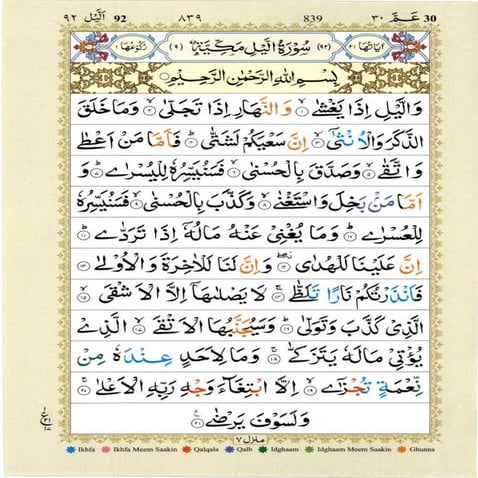 اَلَّيْل ٩٢ 92 ٨٣٩ 839 عَمَّ ٣٠ 30
رُكُوْعُهَا ١ (٩) سُوْرَةُ الَّيْلِ مَكِّيَّةٌ (٩٢) اٰيَاتُهَا ٢١
بِسْمِ اللّٰهِ الرَّحْمٰنِ الرَّحِيْمِ
وَالَّيْلِ اِذَا يَغْشٰىۙ ١ وَالنَّهَارِ اِذَا تَجَلّٰىۙ ٢ وَمَا خَلَقَ
الذَّكَرَ وَالْاُنْثٰىۤۙ ٣ اِنَّ سَعْيَكُمْ لَشَتّٰىؕ ٤ فَاَمَّا مَنْ اَعْطٰى
وَاتَّقٰىۙ ٥ وَصَدَّقَ بِالْحُسْنٰىۙ ٦ فَسَنُيَسِّرُهٗ لِلْيُسْرٰىؕ ٧ وَ
اَمَّا مَنْۢ بَخِلَ وَاسْتَغْنٰىۙ ٨ وَكَذَّبَ بِالْحُسْنٰىۙ ٩ فَسَنُيَسِّرُهٗ
لِلْعُسْرٰىؕ ١٠ وَمَا يُغْنِيْ عَنْهُ مَالُهٗۤ اِذَا تَرَدّٰىؕ ١١
اِنَّ عَلَيْنَا لَلْهُدٰىؗۖ ١٢ وَاِنَّ لَنَا لَلْاٰخِرَةَ وَالْاُوْلٰى ١٣
فَاَنْذَرْتُكُمْ نَارًا تَلَظّٰىۚ ١٤ لَا يَصْلٰىهَاۤ اِلَّا الْاَشْقَىۙ ١٥
الَّذِيْ كَذَّبَ وَتَوَلّٰىؕ ١٦ وَسَيُجَنَّبُهَا الْاَتْقَىۙ ١٧ الَّذِيْ
يُؤْتِيْ مَالَهٗ يَتَزَكّٰىۚ ١٨ وَمَا لِاَحَدٍ عِنْدَهٗ مِنْ
نِّعْمَةٍ تُجْزٰىۤۙ ١٩ اِلَّا ابْتِغَآءَ وَجْهِ رَبِّهِ الْاَعْلٰىۚ ٢٠
وَلَسَوْفَ يَرْضٰى ٢١
منزل ٧
Ikhfa Ikhfa Meem Saakin Qalqala Qalb Idghaam Idghaam Meem Saakin Ghunna